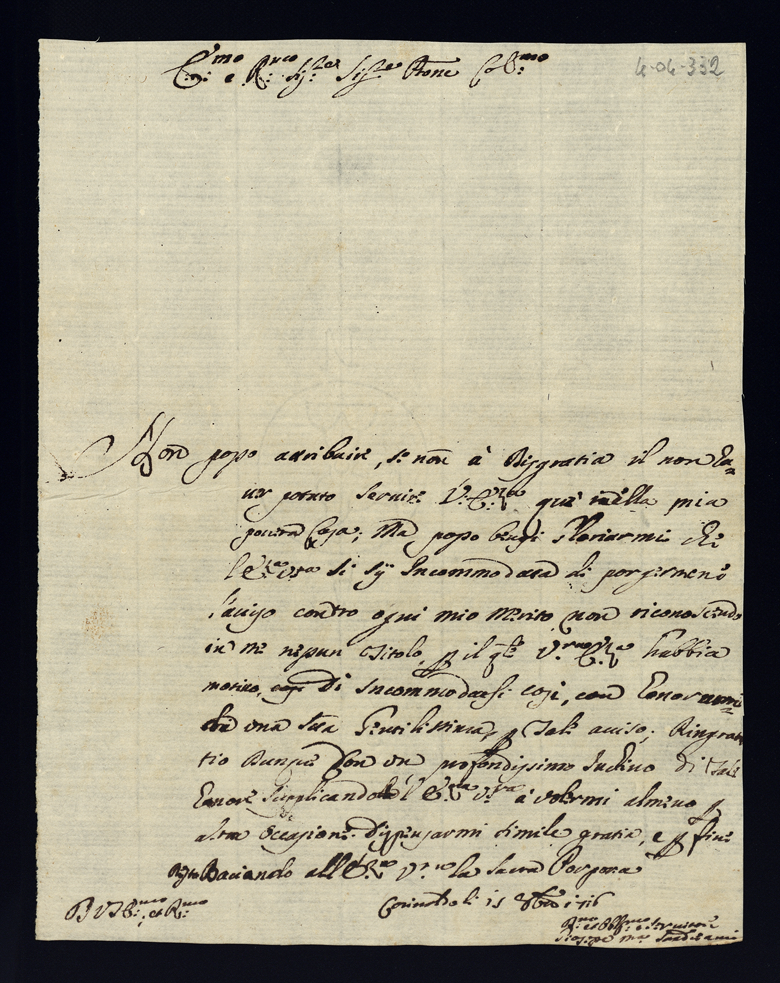 4-04-332
E.mo e R.mo Sig.re Sig.re Prone Col.mo
Non posso attribuire, se non à Disgratia il non ha=
ver potuto servire V.E. quì nella mia
povera Casa; Ma posso bensì gloriarmi che
l'E. v.ra si sij Incommodata di porgermene
l'aviso contro ogni mio merito, non riconoscendo
in me nessun Titolo, p il qle V.E. habbia
motivo di Incommodarsi così, con honorarmi
una sua Gentilissima, p Tale aviso; Ringra=
tio Dunque Con un profondissimo Inchino di Tale
honore Supplicando l'E. v.ra à volermi almeno p
altra occasione Dispensarmi simile gratia, e p fine
Resto Baciando all'E. v.ra la Sacra Porpora
li 15 1716